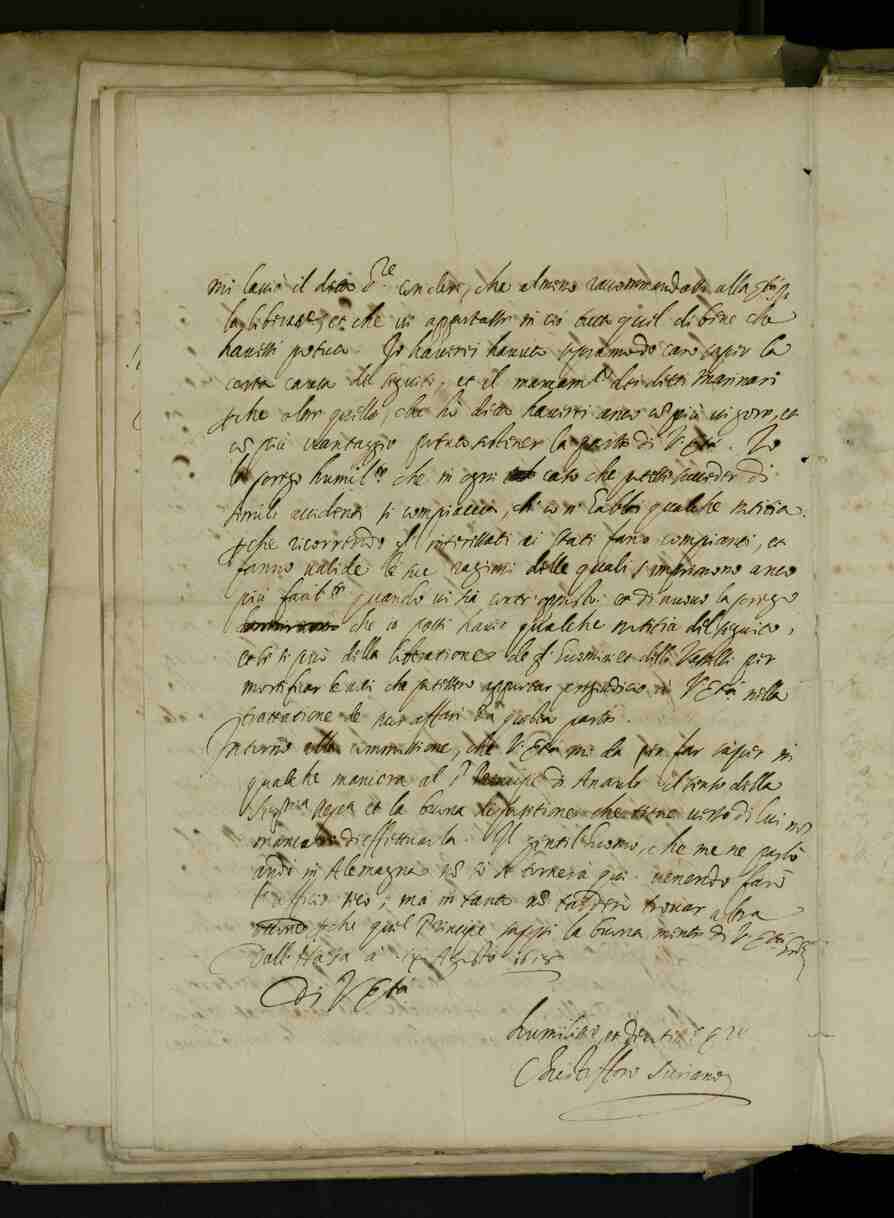 mi lasciò il detto S.re concluder, che almeno raccommandassi alla
la liberat.ne, et che vi apportassi in ciò tutto quel di bene che
havessi potuto. Io haverei havuto sopramodo caro saper la
certa causa del seguito, et il mancam.to dei detti Marinari
perche oltre quello, che hò detto haverei anco cõ più vigore, et
cõ più vantaggio potuto sostener la parte di V. E.tà. Io
la prego humil.te che in ogni caso che potesse succeder di
simili accidenti si compiaccia, ch'io n'habbi qualche notitia
perche ricorrendo gl'interessati ai Stati fanno compianti, et
fanno valide le sue ragioni delle quali s'imprimono anco
più facil.te quando vi sia contr'opposto: et di nuovo la prego
che io possi haver qualche notitia del seguito,
et di più della liberatione de gl'huomini et delli Vasselli per
mortificar le voci che potessero apportar pregiudicio à V. E.tà nella
trattatione de suoi affari da queste parti.
Intorno alla commissione, che V. E.tà mi dà per far saper in
qualche maniera al S.r Principe di Anault il senso della
Ser.ma Rep.ca et la buona dispositione che tiene verso di lui non
mancarò di essequirla. Il gentilhuomo, che me ne parlò
andò in Alemagna nõ sò se tornerà quì. venendo farò
l'officio seco; ma in tanto nõ tarderò trovar altra
perche quel Principe sappi la buona mente di V. E.tà
Dall'Haya à Agosto 1618
Di V. E.tà
humiliss.o et devotiss.o ser.re
Christofforo Suriano